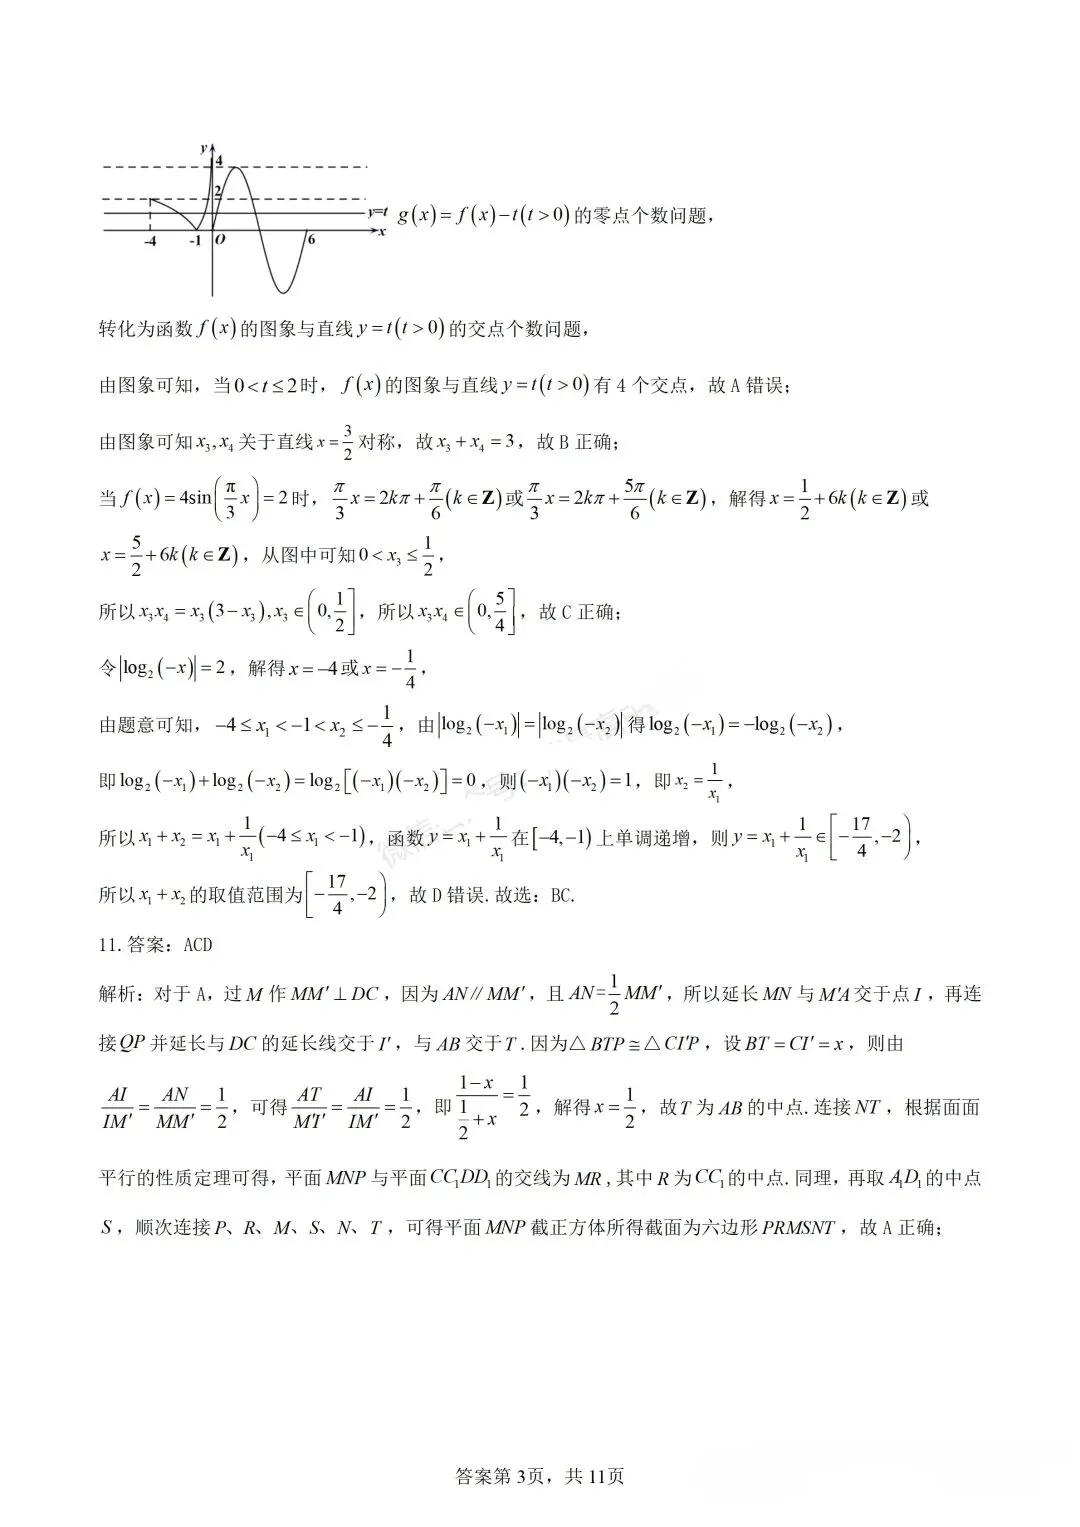 y
4
2
y=t
-4 -1 O 6 x
g(x)=f(x)-t(t>0)的零点个数问题，
转化为函数 f(x)的图象与直线 y=t(t>0)的交点个数问题，
由图象可知，当0<t≤2时，f(x)的图象与直线 y=t(t>0)有 4 个交点，故 A 错误；
由图象可知 x₃,x₄ 关于直线 x=3/2 对称，故 x₃+x₄=3，故 B 正确；
当 f(x)=4sin(π/3 x)=2时，π/3 x=2kπ+π/6(k∈Z)或 π/3 x=2kπ+5π/6(k∈Z)，解得 x=1/2+6k(k∈Z)或
x=5/2+6k(k∈Z)，从图中可知 0<x₃≤1/2，
所以 x₃x₄=x₃(3-x₃),x₃∈(0,1/2]，所以 x₃x₄∈(0,5/4]，故 C 正确；
令|log₂(-x)|=2，解得 x=-4或 x=-1/4，
由题意可知，-4≤x₁<-1<x₂≤-1/4，由|log₂(-x₁)|=|log₂(-x₂)|得log₂(-x₁)=-log₂(-x₂)，
即 log₂(-x₁)+log₂(-x₂)=log₂[(-x₁)(-x₂)]=0，则(-x₁)(-x₂)=1，即 x₂=1/x₁，
所以 x₁+x₂=x₁+1/x₁(-4≤x₁<-1)，函数 y=x₁+1/x₁ 在[-4,-1)上单调递增，则 y=x₁+1/x₁∈[-17/4,-2)，
所以 x₁+x₂ 的取值范围为[-17/4,-2)，故 D 错误.故选：BC.
11.答案：ACD
解析：对于 A，过 M 作 MM′⊥DC，因为 AN∥MM′，且 AN=1/2 MM′，所以延长 MN 与 M′A 交于点 I，再连
接 QP 并延长与 DC 的延长线交于 I′，与 AB 交于 T．因为△BTP≌△CI′P，设 BT=CI′=x，则由
AI/IM′=AN/MM′=1/2，可得 AT/M′I′=AI/IM′=1/2，即 (1-x)/(1/2+x)=1/2，解得 x=1/2，故 T 为 AB 的中点．连接 NT，根据面面
平行的性质定理可得，平面 MNP 与平面 CC₁DD₁ 的交线为 MR,其中 R 为 CC₁ 的中点．同理，再取 A₁D₁ 的中点
S，顺次连接 P、R、M、S、N、T，可得平面 MNP 截正方体所得截面为六边形 PRMSNT，故 A 正确；
答案第 3页，共 11页